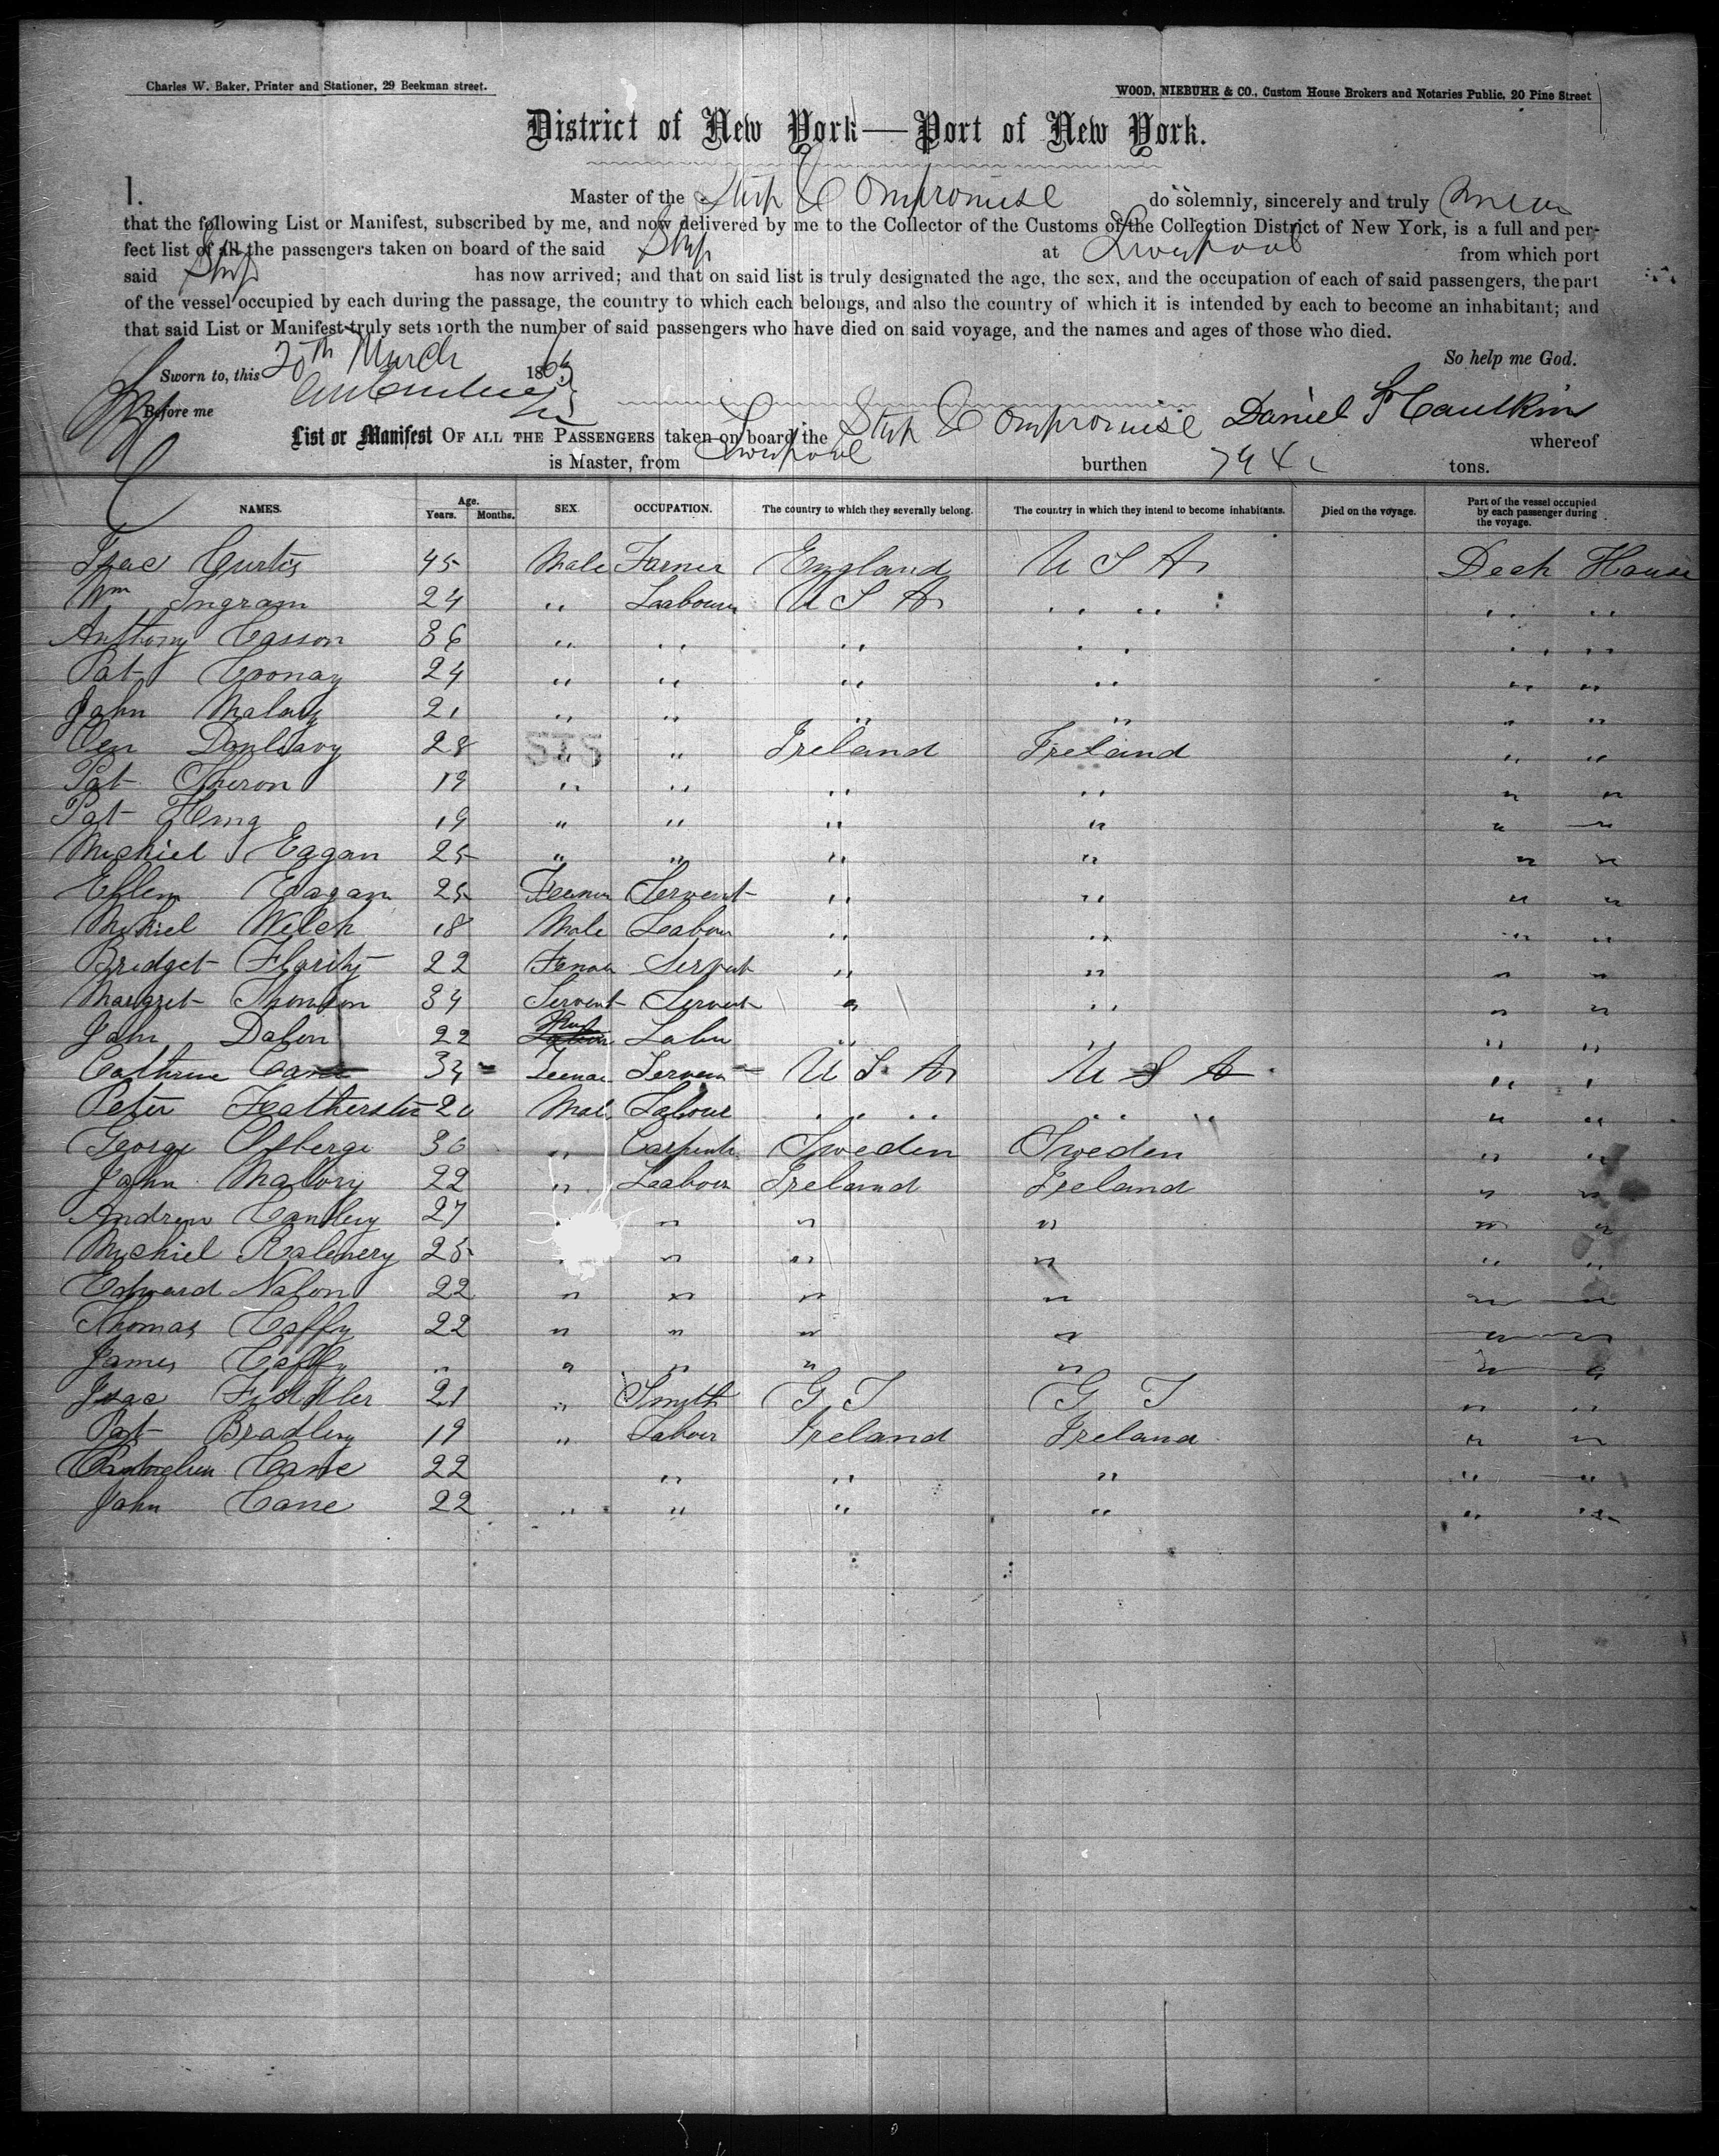 Charles W. Baker, Printer and Stationer, 29 Beekman street.
WOOD, NIEBUHR & CO., Custom House Brokers and Notaries Public, 20 Pine Street
District of New York—Port of New York.
I. Master of the Ship Compromise do solemnly, sincerely and truly swear
that the following List or Manifest, subscribed by me, and now delivered by me to the Collector of the Customs of the Collection District of New York, is a full and per-
fect list of all the passengers taken on board of the said Ship at Liverpool from which port
said Ship has now arrived; and that on said list is truly designated the age, the sex, and the occupation of each of said passengers, the part
of the vessel occupied by each during the passage, the country to which each belongs, and also the country of which it is intended by each to become an inhabitant; and
that said List or Manifest truly sets forth the number of said passengers who have died on said voyage, and the names and ages of those who died.
So help me God.
Sworn to, this 20th March 186
Before me
List or Manifest OF ALL THE PASSENGERS taken on board the Ship Compromise Daniel S Caulkins whereof
is Master, from Liverpool burthen tons.
NAMES. Age. Years. Months. SEX. OCCUPATION. The country to which they severally belong. The country in which they intend to become inhabitants. Died on the voyage. Part of the vessel occupied by each passenger during the voyage.
Isac Curtis 45 Male Farner England U S A Deck House
Wm Ingram 24 " Labourer U S A " " " "
Anthony Casson 36 " " " " " "
Pat Coonay 24 " " " " " "
John Malony 21 " " " " " "
Dunleavy 28 " " Ireland Ireland " "
Pat 19 " " " " " "
Pat 19 " " " " " "
Michiel Eagan 25 " " " " " "
Ellen Eagan 25 Servent " " " "
Michiel Welch 18 Male Labour " " " "
Bridget Flarity 22 Servent " " " "
Margret Thomson 34 Servent Servent " " " "
John Dalon 22 " " " "
Cathrine Cane 34 U S A U S A " "
Peter 20 Male Labour " " " " " "
George 30 " Carpenter Sweden Sweden " "
John Malory 22 " Labour Ireland Ireland " "
Andrew 27 " " " " "
Michiel 25 " " " " " "
Edward Nalon 22 " " " " " "
Thomas Caffy 22 " " " " " "
James Caffy " " " " " " "
Isac Fiddler 21 " Smyth G I G I " "
Pat Bradley 19 " Labour Ireland Ireland " "
Cane 22 " " " " "
John Cane 22 " " " " " "